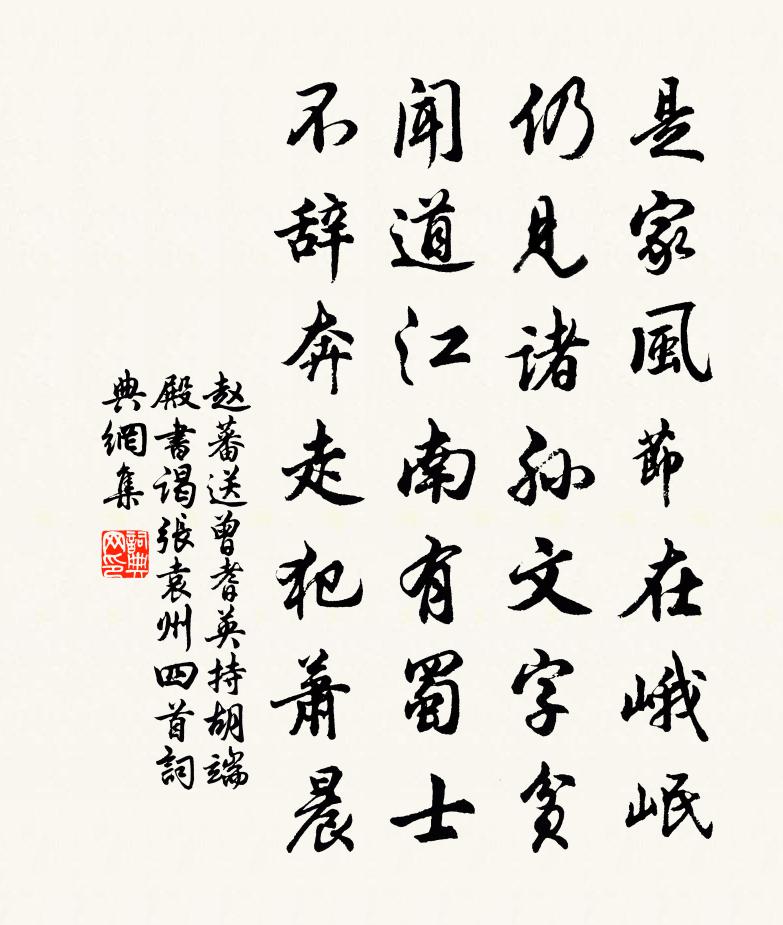 是家風節在峨岷
仍見諸孙文字貧
闻道江南有蜀士
不辞奔走犯蕭晨
赵蕃送曾耆英持胡端
殿書谒張袁州四首詞
典網集
詞典网印